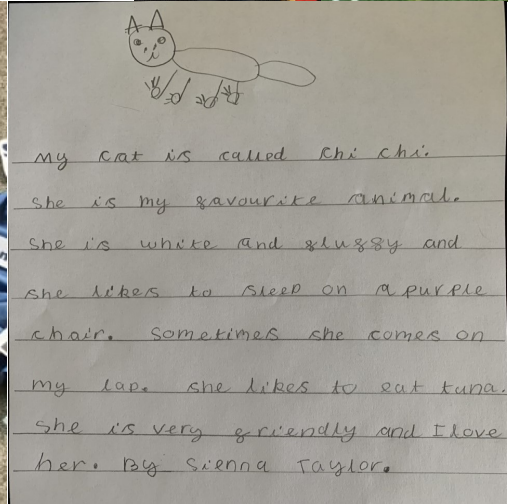 My cat is called Chi Chi.
She is my favourite animal.
She is white and fluffy and
she likes to sleep on a purple
chair. Sometimes she comes on
my lap. She likes to eat tuna.
She is very friendly and I love
her. By Sienna Taylor.